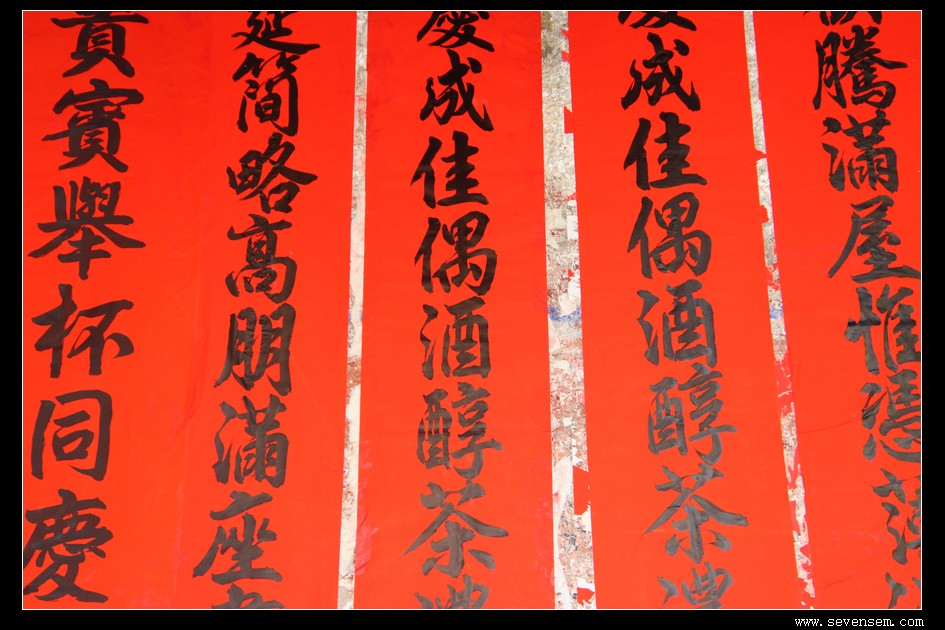 騰滿屋惟憑薄
慶成佳偶酒醇茶濃
慶成佳偶酒醇茶濃
筵簡略高朋滿座
貴賓舉杯同慶
www.sevensem.com